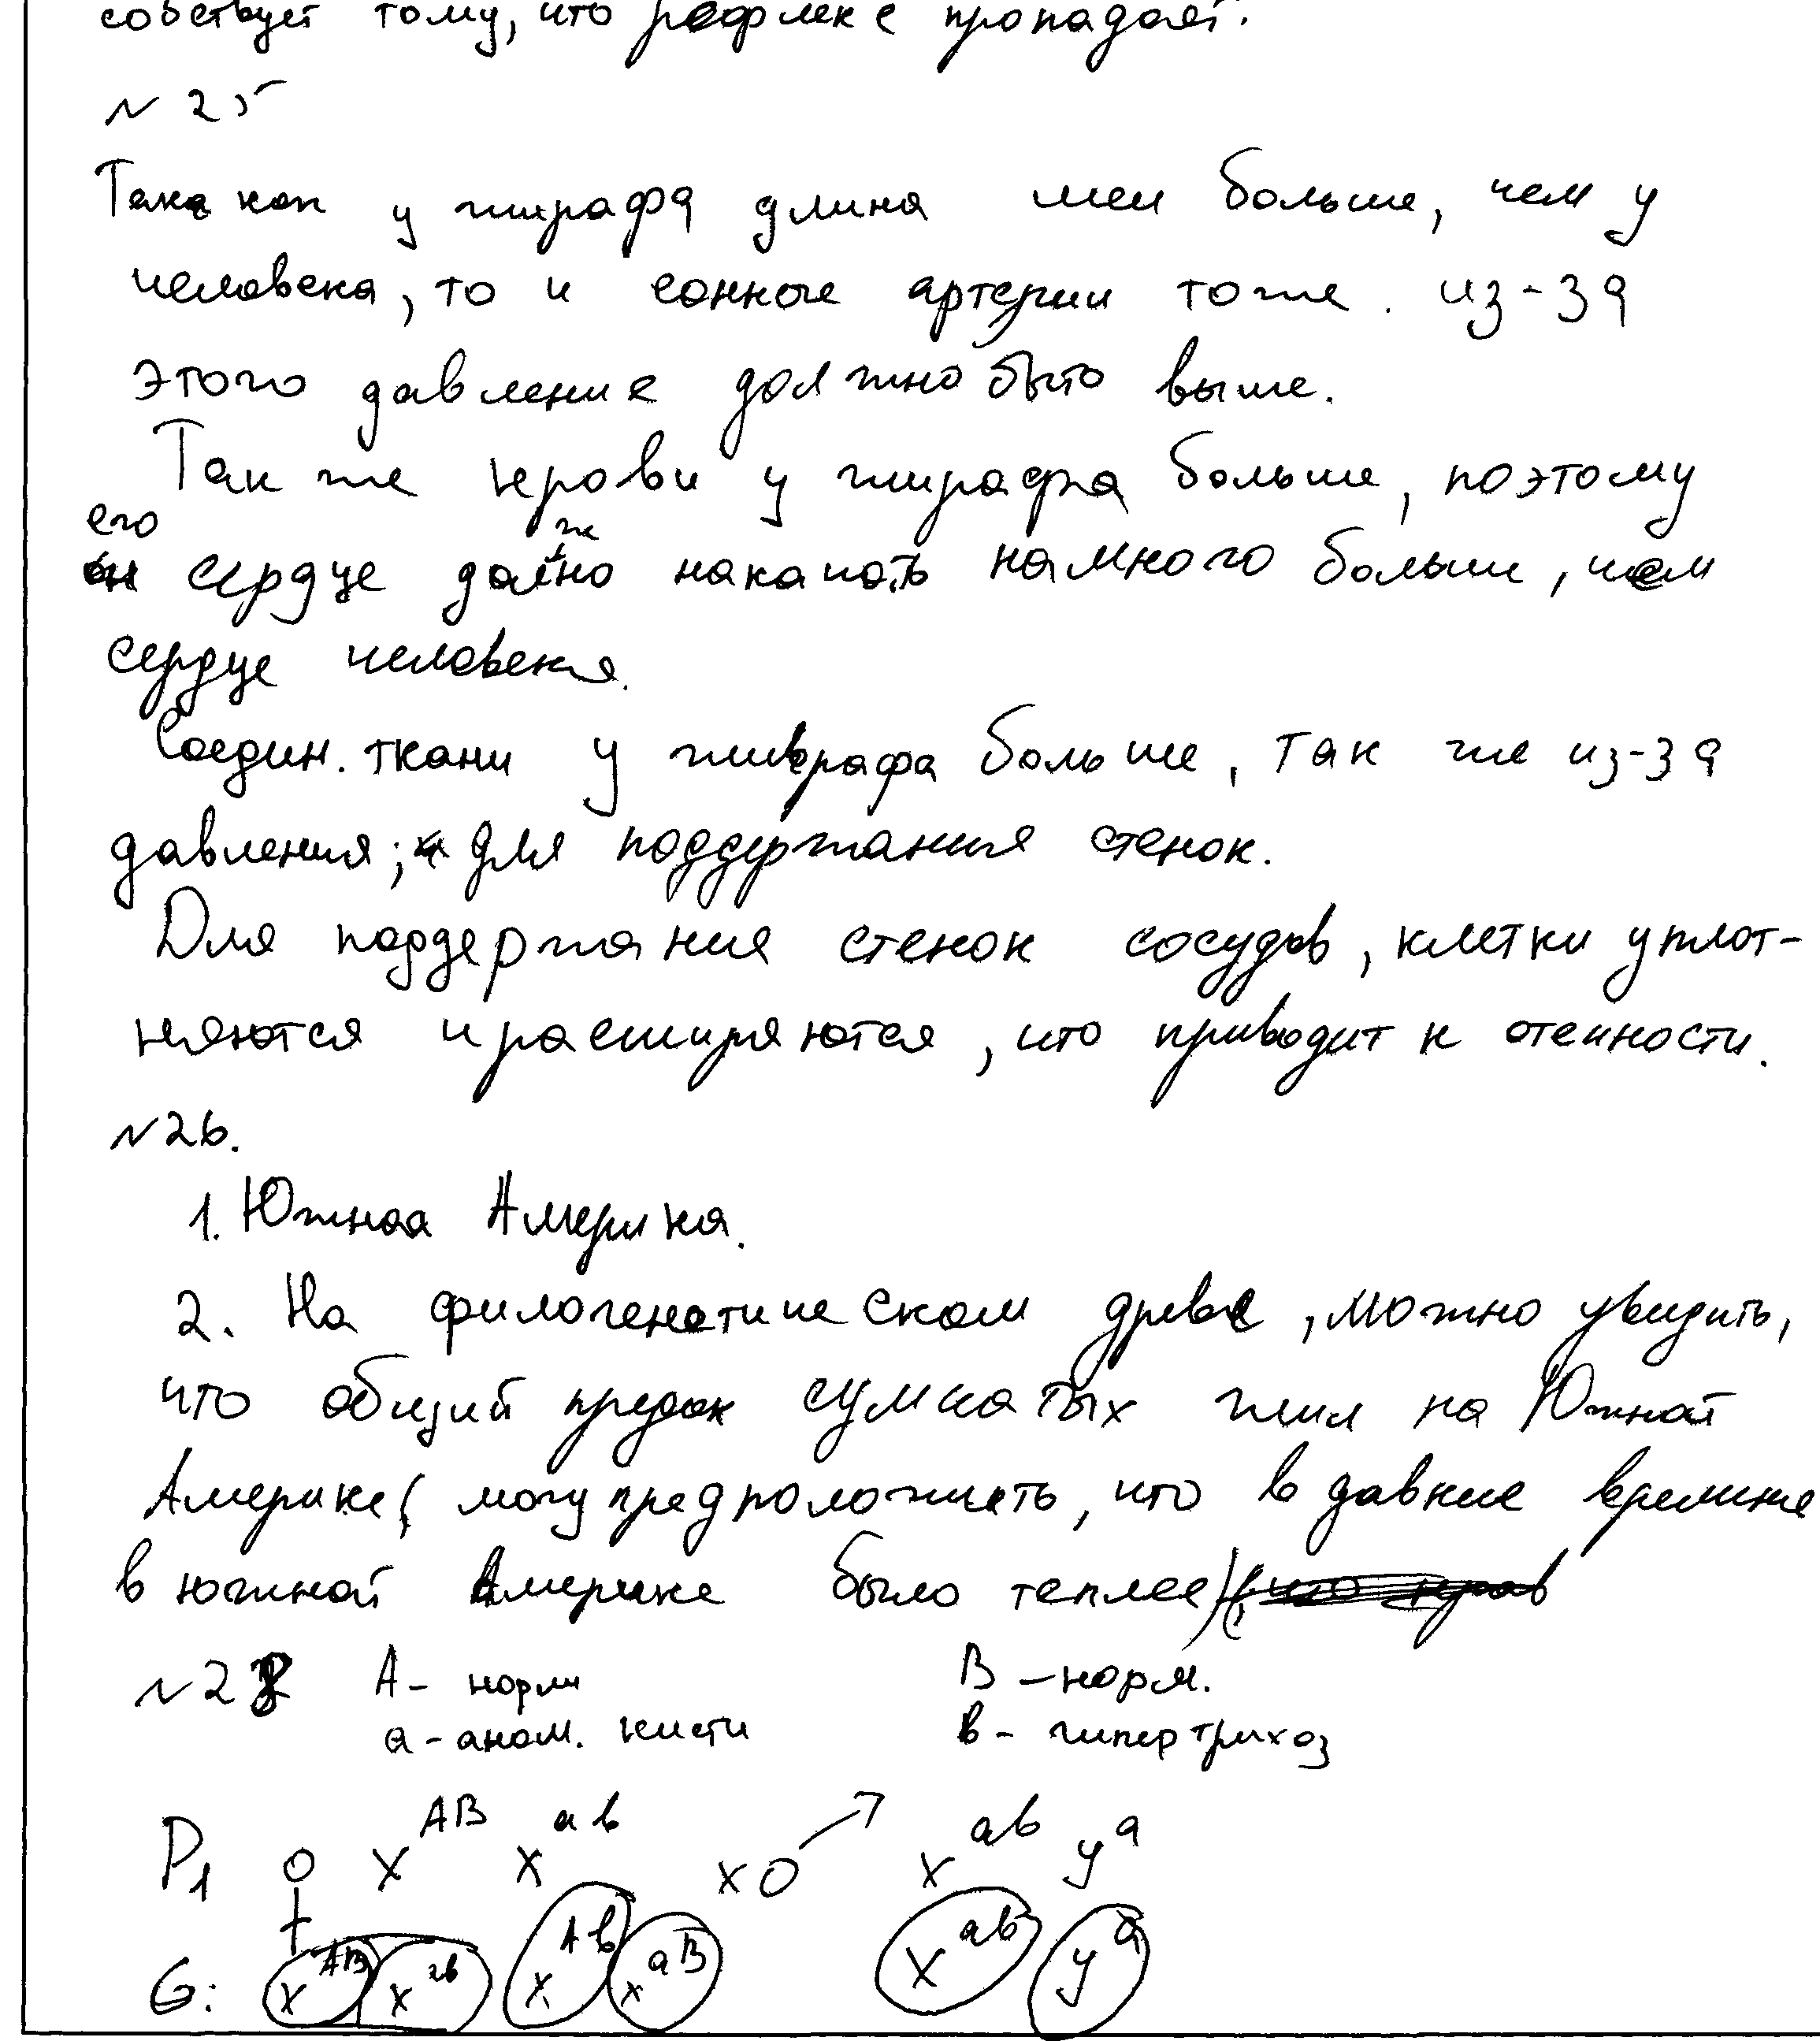 собствует тому, что рефлекс пропадает.
№ 25
Так как у жирафа длина шеи больше, чем у
человека, то и сонные артерии тоже. из-за
этого давление должно быть выше.
Так же крови у жирафа больше, поэтому
его
сердце должно накачать намного больше, чем
сердце человека.
Соедин. ткани у жирафа больше, так же из-за
давления; для поддержания стенок.
Для поддержания стенок сосудов, клетки уплот-
няются и расширяются, что приводит к отечности.
№26.
1. Южная Америка.
2. На филогенетическом древе, можно увидить,
что общий предок сумчатых жил на Южной
Америке (могу предположить, что в давние времена
в южной Америке было теплее)
№28 А - норм В - норм.
а - аном. кисти в - гипертрихоз
P1 ♀ X^AB X^ab x ♂ X^ab У^a
G: X^AB X^ab X^Ab X^aB X^ab У^a